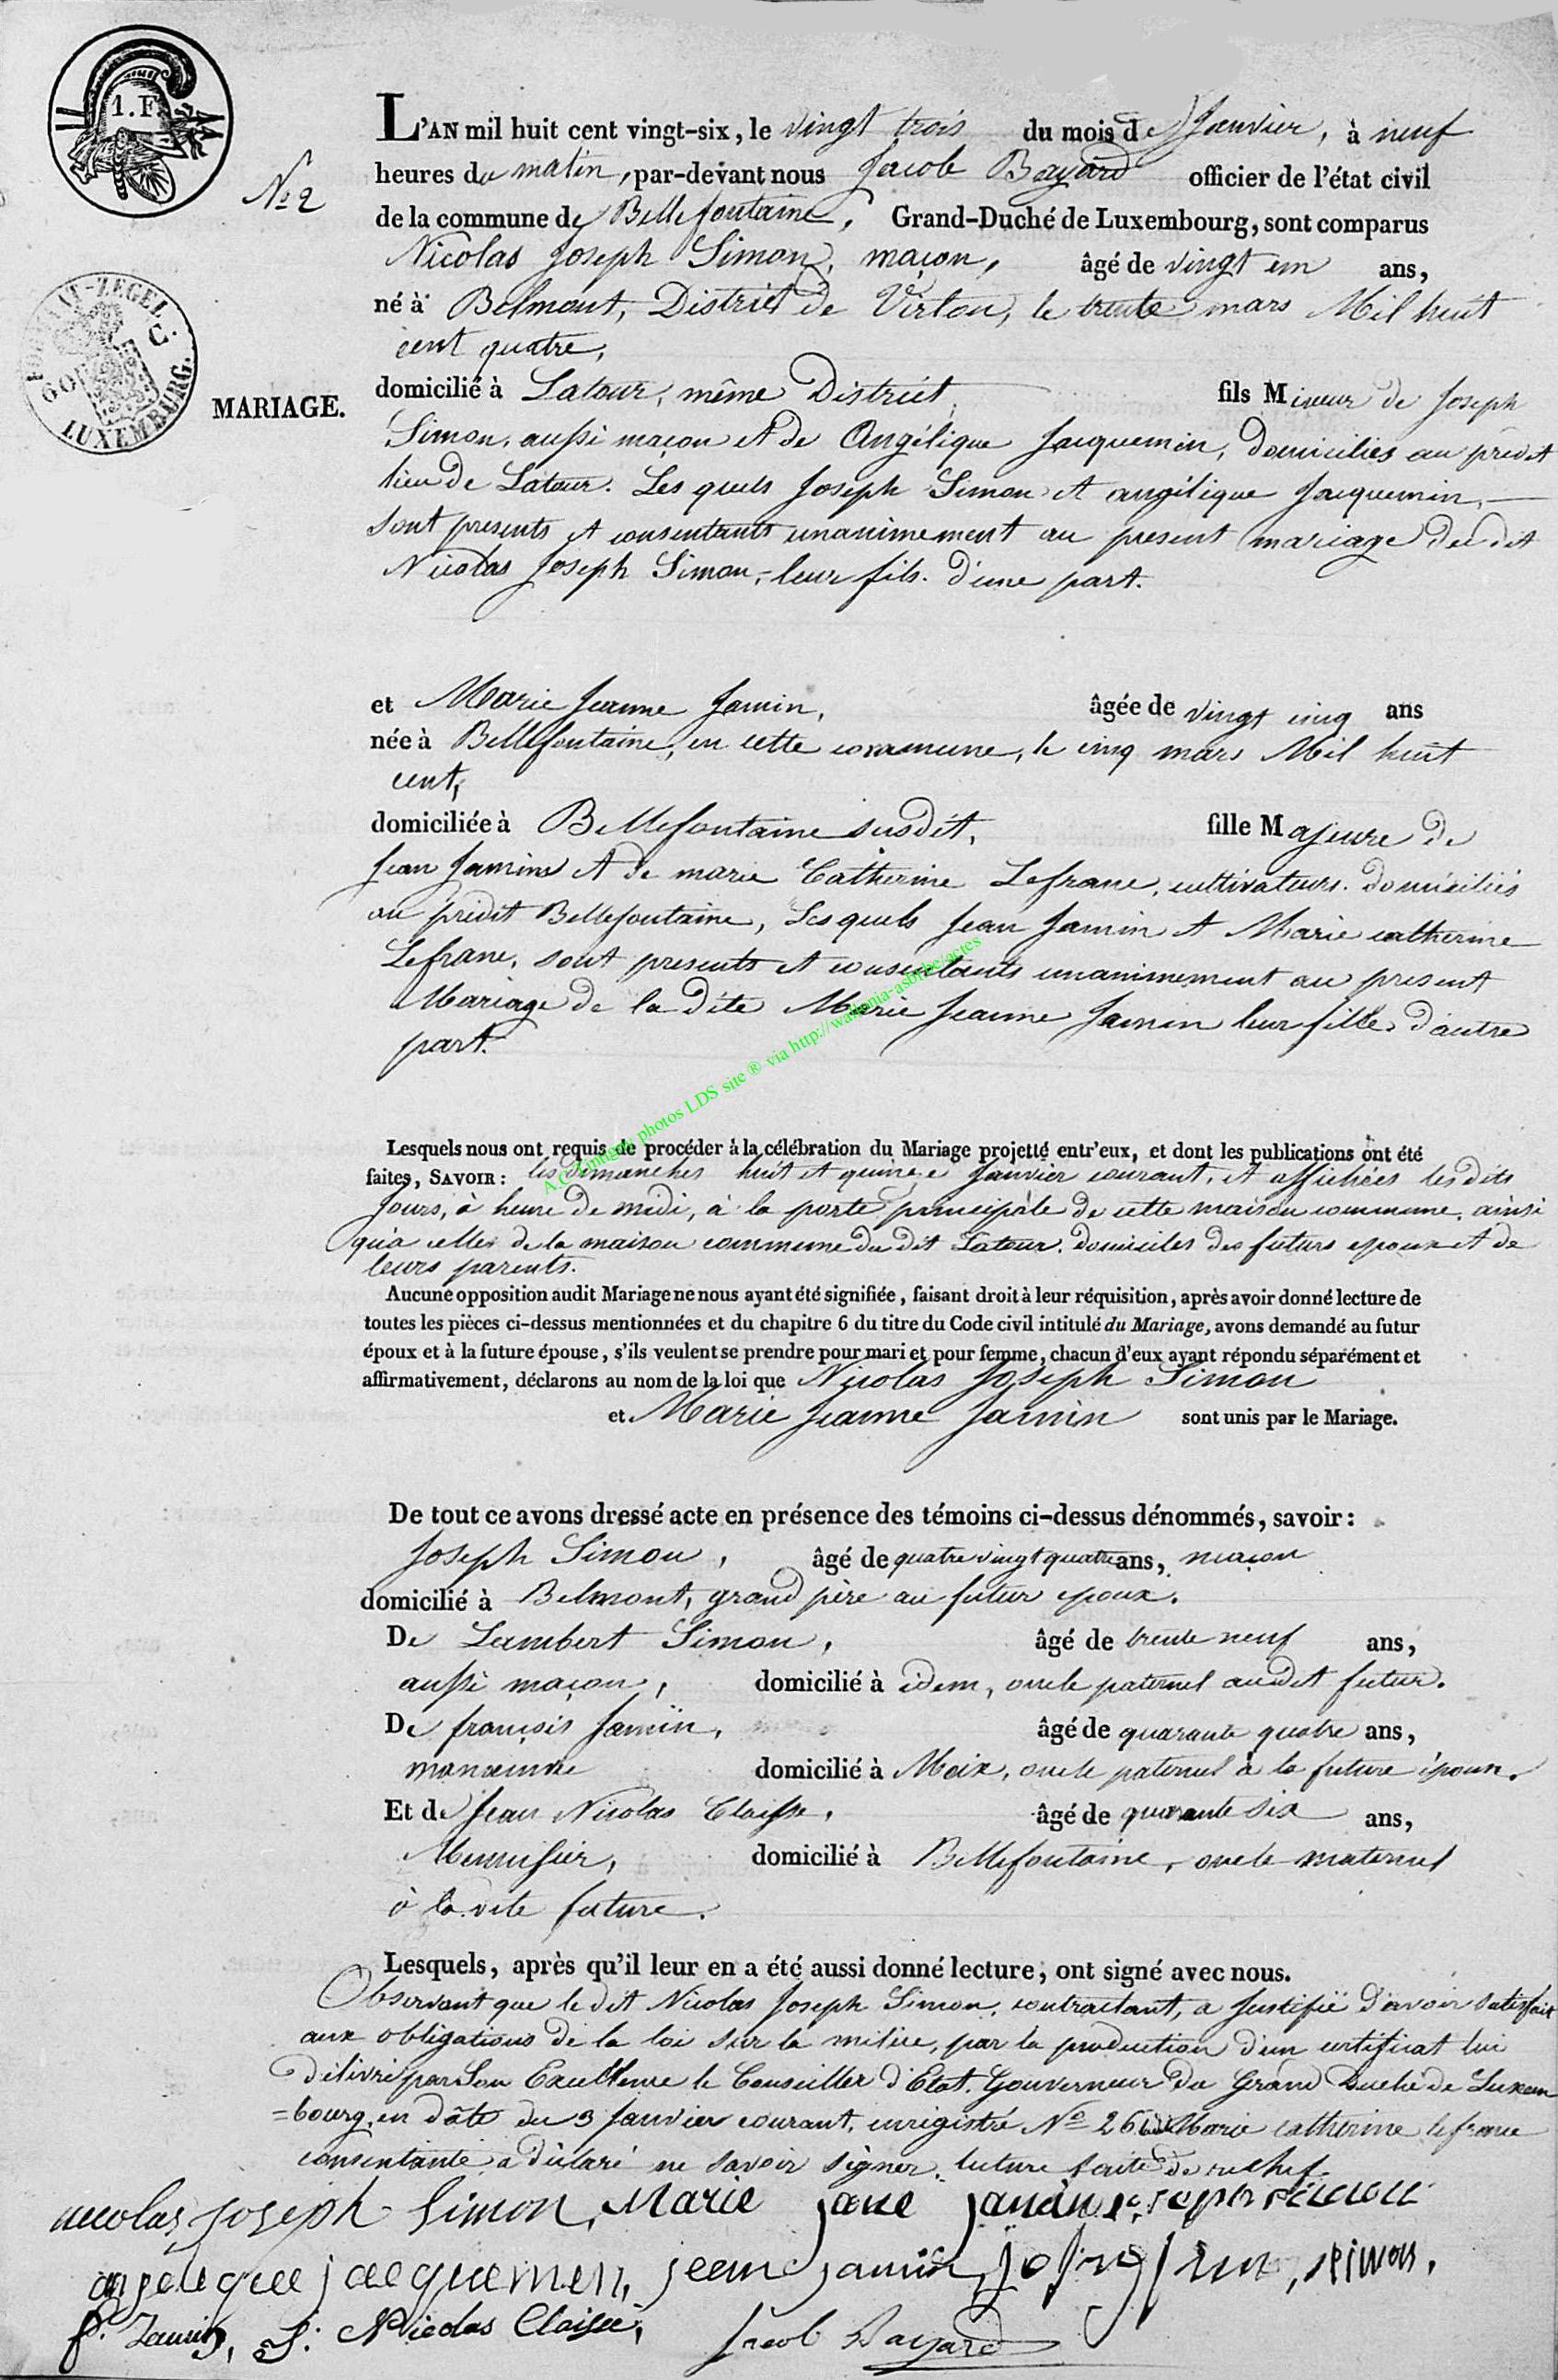 1. F.
L'AN mil huit cent vingt-six, le vingt trois du mois de Janvier, à neuf
N° 2
heures du matin, par-devant nous Jacob Bayard officier de l'état civil
de la commune de Bellefontaine, Grand-Duché de Luxembourg, sont comparus
Nicolas Joseph Simon, maçon, âgé de vingt un ans,
né à Belmont, District de Virton, le trente mars Mil huit
cent quatre,
LUXEMBURG.
MARIAGE.
domicilié à Latour, même District, fils Mineur de Joseph
Simon, aussi maçon et de Angélique Jacquemin, domiciliés au prédit
lieu de Latour. Les quels Joseph Simon et angélique Jacquemin,
sont presents et consentants unanimement au present mariage du dit
Nicolas Joseph Simon, leur fils. d'une part.
et Marie Jeanne Jamin, âgée de vingt cinq ans
née à Bellefontaine, en cette commune, le cinq mars Mil huit
cent,
domiciliée à Bellefontaine susdit, fille Majeure de
Jean Jamin et de marie Catherine Lefranc, cultivateurs. domiciliés
au prédit Bellefontaine, Les quels Jean Jamin et Marie catherine
Lefranc, sont presents et consentants unanimement au present
Mariage de la dite Marie Jeanne Jamin leur fille, d'autre
part.
photos LDS site ® via http://wallonia-asbl.be/actes
Lesquels nous ont requis de procéder à la célébration du Mariage projetté entr'eux, et dont les publications ont été
faites, SAVOIR : les dimanches huit et quinze Janvier courant, et affichées les dits
Jours, à heure de midi, à la porte principale de cette maison commune, ainsi
qu'à celle de la maison commune du dit Latour, domiciles des futurs epoux et de
leurs parents.
Aucune opposition audit Mariage ne nous ayant été signifiée, faisant droit à leur réquisition, après avoir donné lecture de
toutes les pièces ci-dessus mentionnées et du chapitre 6 du titre du Code civil intitulé du Mariage, avons demandé au futur
époux et à la future épouse, s'ils veulent se prendre pour mari et pour femme, chacun d'eux ayant répondu séparément et
affirmativement, déclarons au nom de la loi que Nicolas Joseph Simon
et Marie Jeanne Jamin sont unis par le Mariage.
De tout ce avons dressé acte en présence des témoins ci-dessus dénommés, savoir :
Joseph Simon, âgé de quatre vingt quatre ans, maçon
domicilié à Belmont, grand père au futur epoux.
De Lambert Simon, âgé de trente neuf ans,
aussi maçon, domicilié à idem, oncle paternel audit futur.
De françois Jamin, âgé de quarante quatre ans,
manœuvre domicilié à Meix, oncle paternel à la future épouse.
Et de Jean Nicolas Claisse, âgé de quarante six ans,
Menuisier, domicilié à Bellefontaine, oncle maternel
à la dite future.
Lesquels, après qu'il leur en a été aussi donné lecture, ont signé avec nous.
Observant que le dit Nicolas Joseph Simon, contractant, a Justifié d'avoir satisfait
aux obligations de la loi sur la milice, par la production d'un certificat lui
délivré par Son Excellence le Conseiller d'Etat, Gouverneur du Grand Duché de Luxem
=bourg, en dâte du 3 Janvier courant, enrégistré N° 26 Marie catherine lefranc
consentante a déclaré ne savoir signer, lecture faite de rechef.
nicolas joseph Simon, Marie jane jamin, joseph simon
angelique jacquemen, jean jamin, simon,
f. Jamin, J: Nicolas Claisse, Jacob Bayard